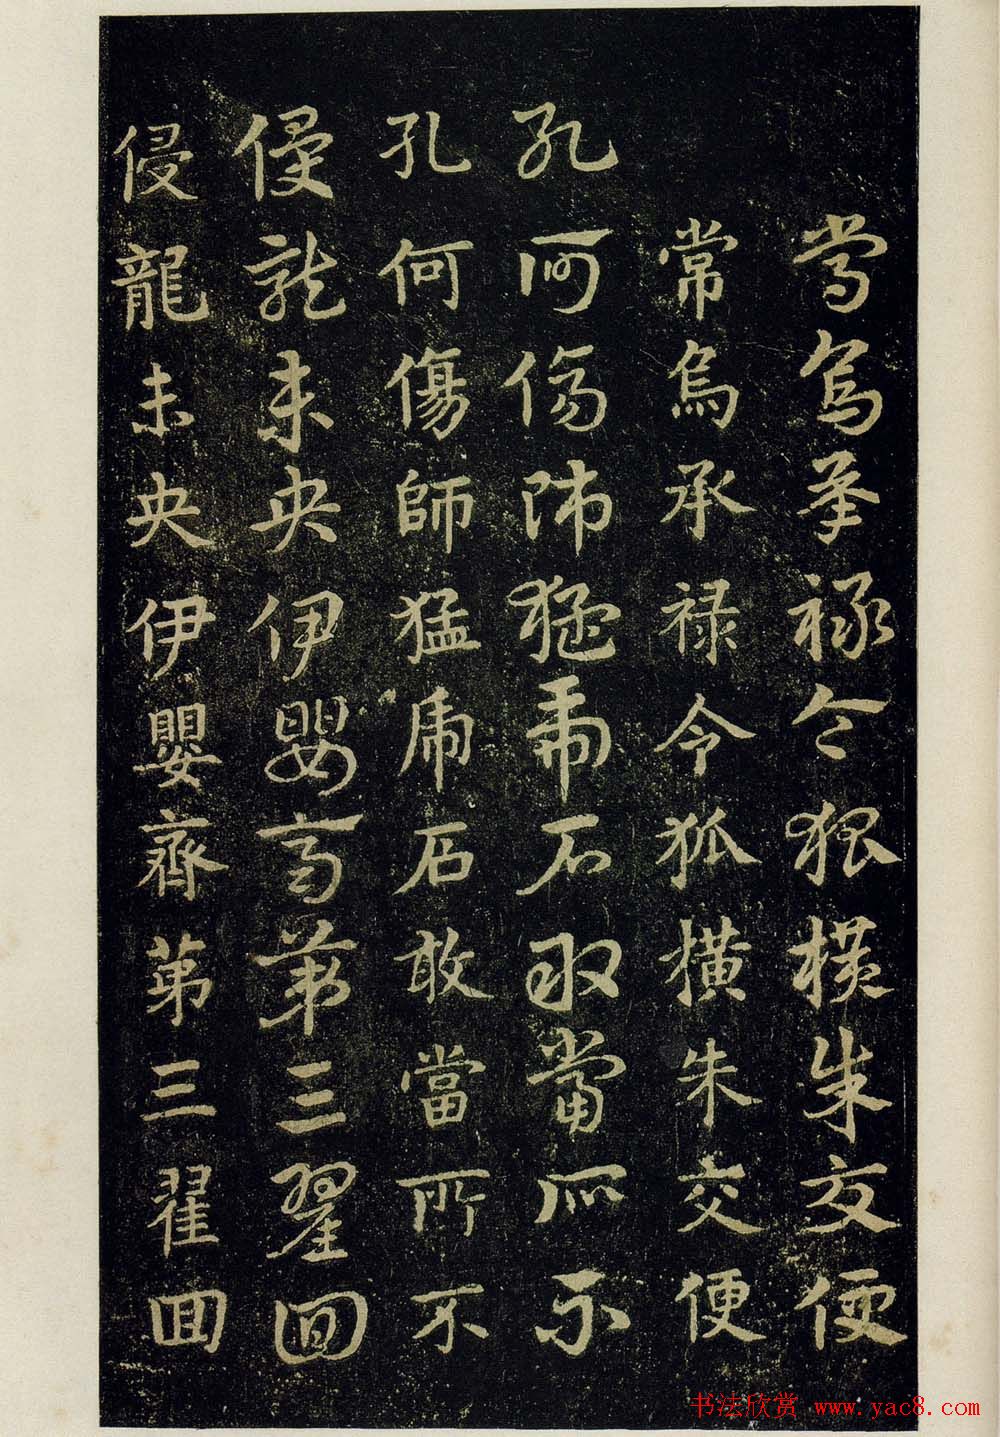 常烏承禄令狐横朱交便
常烏承禄令狐横朱交便
孔何傷師猛虎石敢當所不
孔何傷師猛虎石敢當所不
侵龍未央伊嬰齊苐三翟回
侵龍未央伊嬰齊苐三翟回
书法欣赏 www.yac8.com